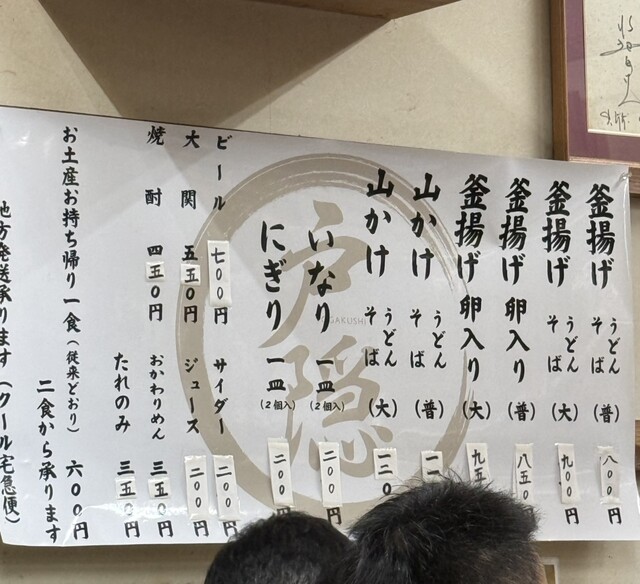 釜揚げ うどん そば (普) 八00円
釜揚げ うどん そば (大) 九00円
釜揚げ 卵入り (普) 八五0
釜揚げ 卵入り (大) 九五
山かけ うどん そば (普) 一
山かけ うどん そば (大) 一二0
いなり 一皿 (2個入) 二00円
にぎり 一皿 (2個入) 二00円
ビール 七00円
サイダー 二00円
大関 五五0円
ジュース 二00円
焼酎 四五0円
おかわりめん 三五0円
たれのみ 三五0円
お土産お持ち帰り 一食(従来どおり) 六00円
二食から承ります
地方発送承ります(クール宅急便)
戸隠